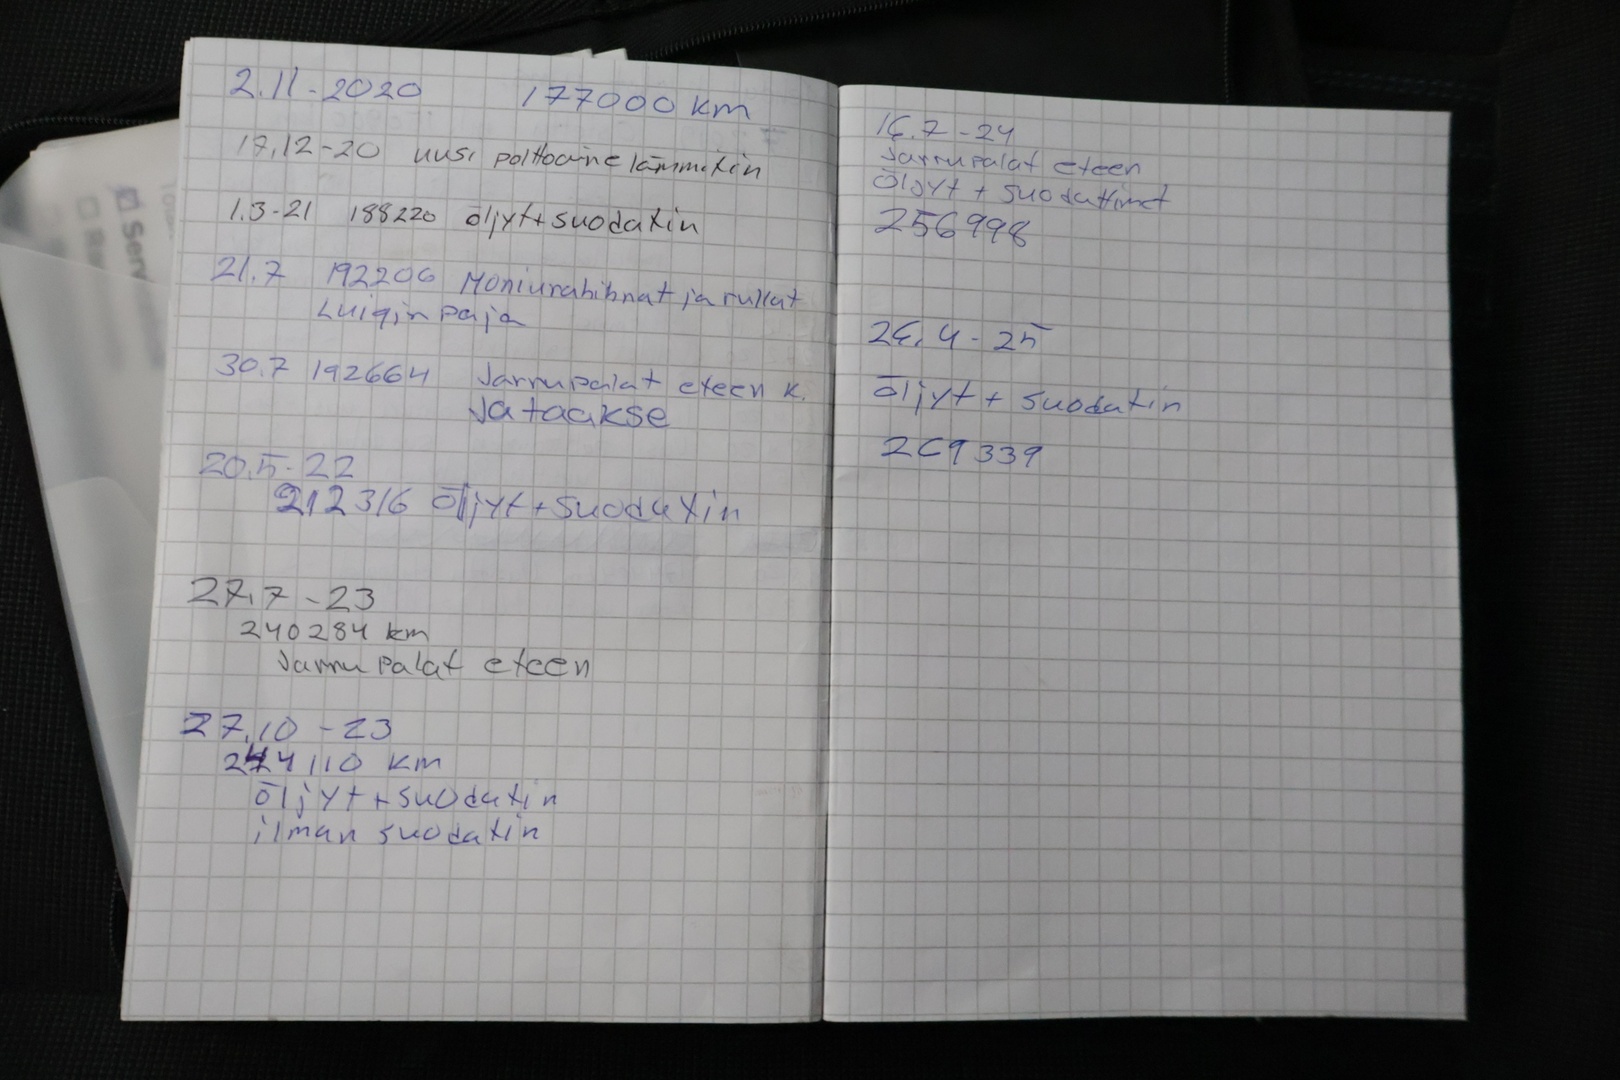 2.11-2020 177000 km
17.12-20 uusi polttoaine lämmitin
1.3-21 188220 öljyt+suodatin
21.7 192206 Moniurahihnat ja rullat
Luigin paja
30.7 192664 Jarrupalat eteen k.
Ja taakse
20.5-22
212316 öljyt+suodatin
27.7-23
240284 km
Jarru palat eteen
27.10-23
244110 km
öljyt+suodatin
ilman suodatin
16.7-24
Jarrupalat eteen
öljyt + suodattimet
256998
26.4-25
öljyt + suodatin
269339
Serv